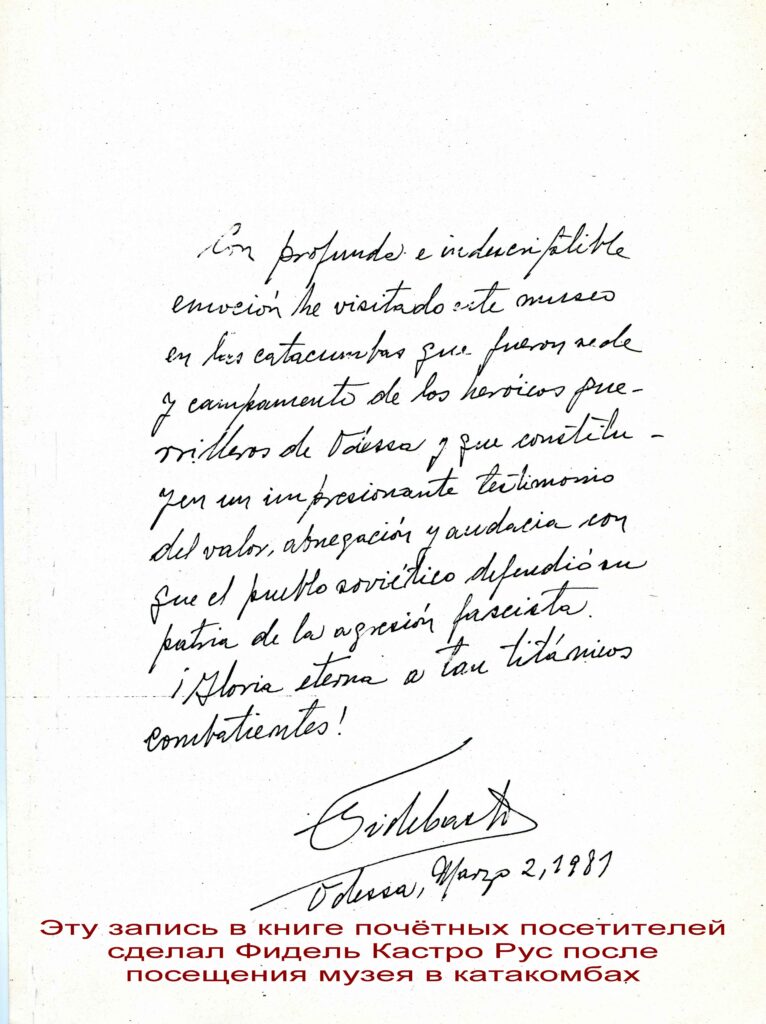 Con profunda e indescriptible
emoción he visitado este museo
en las catacumbas que fueron sede
y campamento de los heroicos gue-
rrilleros de Odessa y que constitu-
yen un impresionante testimonio
del valor, abnegación y audacia con
que el pueblo soviético defendió su
patria de la agresión fascista.
¡Gloria eterna a tan titánicos
combatientes!
Odessa, Marzo 2, 1981
Эту запись в книге почётных посетителей
сделал Фидель Кастро Рус после
посещения музея в катакомбах